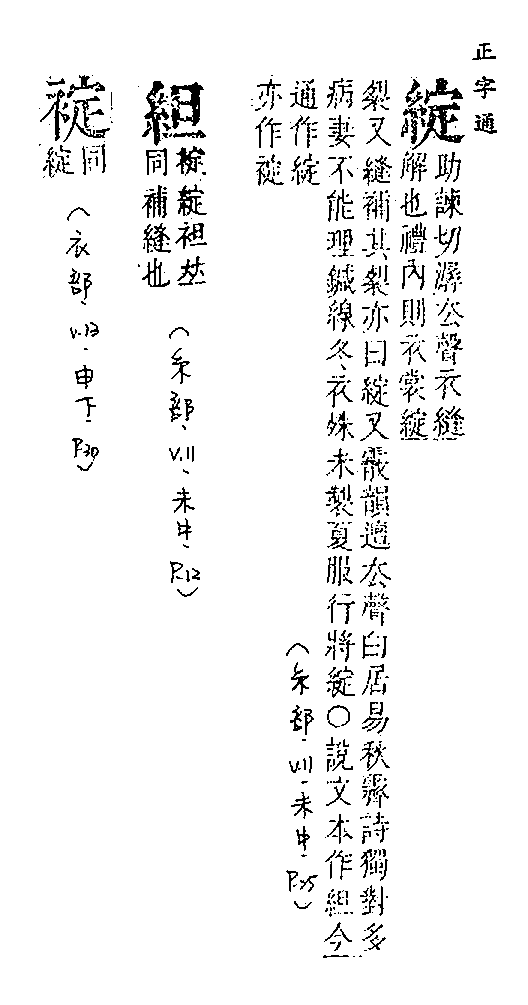 正字通
綻
助諫切潺去聲衣縫
解也禮內則衣裳綻
裂又縫補其裂亦曰綻又霰韻邅去聲白居易秋霽詩獨對多
病妻不能理鍼線冬衣殊未製夏服行將綻○說文本作組今
通作綻
亦作䘺
(糸部·v.11·未中·P.25)
組
䘺綻袒𠀤
同補縫也
(糸部·v.11·未中·P.12)
䘺
同
綻
(衣部·v.13·申下·P.30)